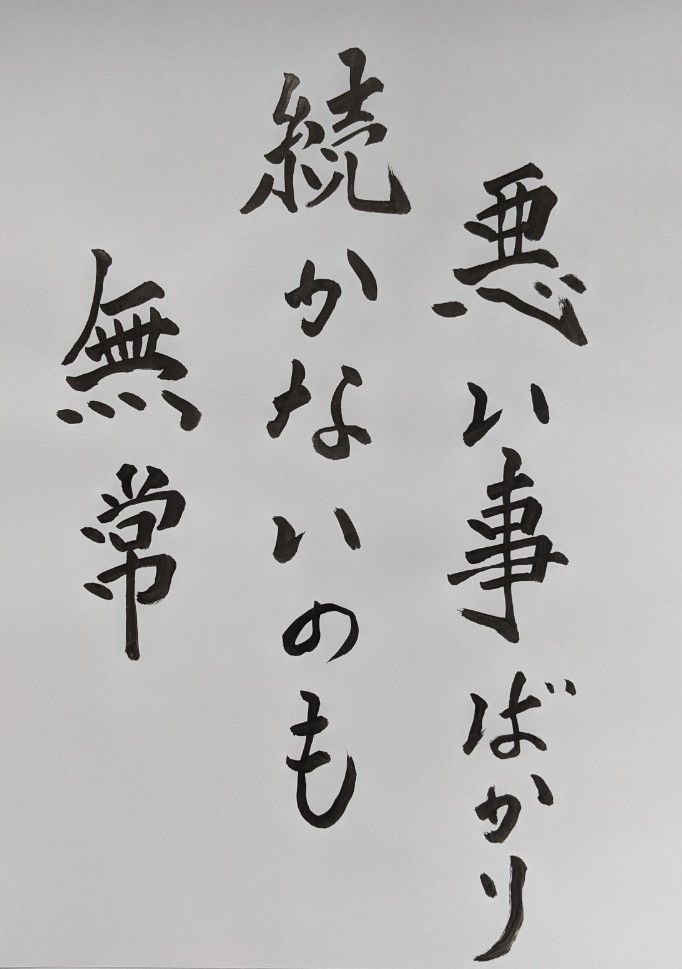 悪い事ばかり
続かないのも
無常